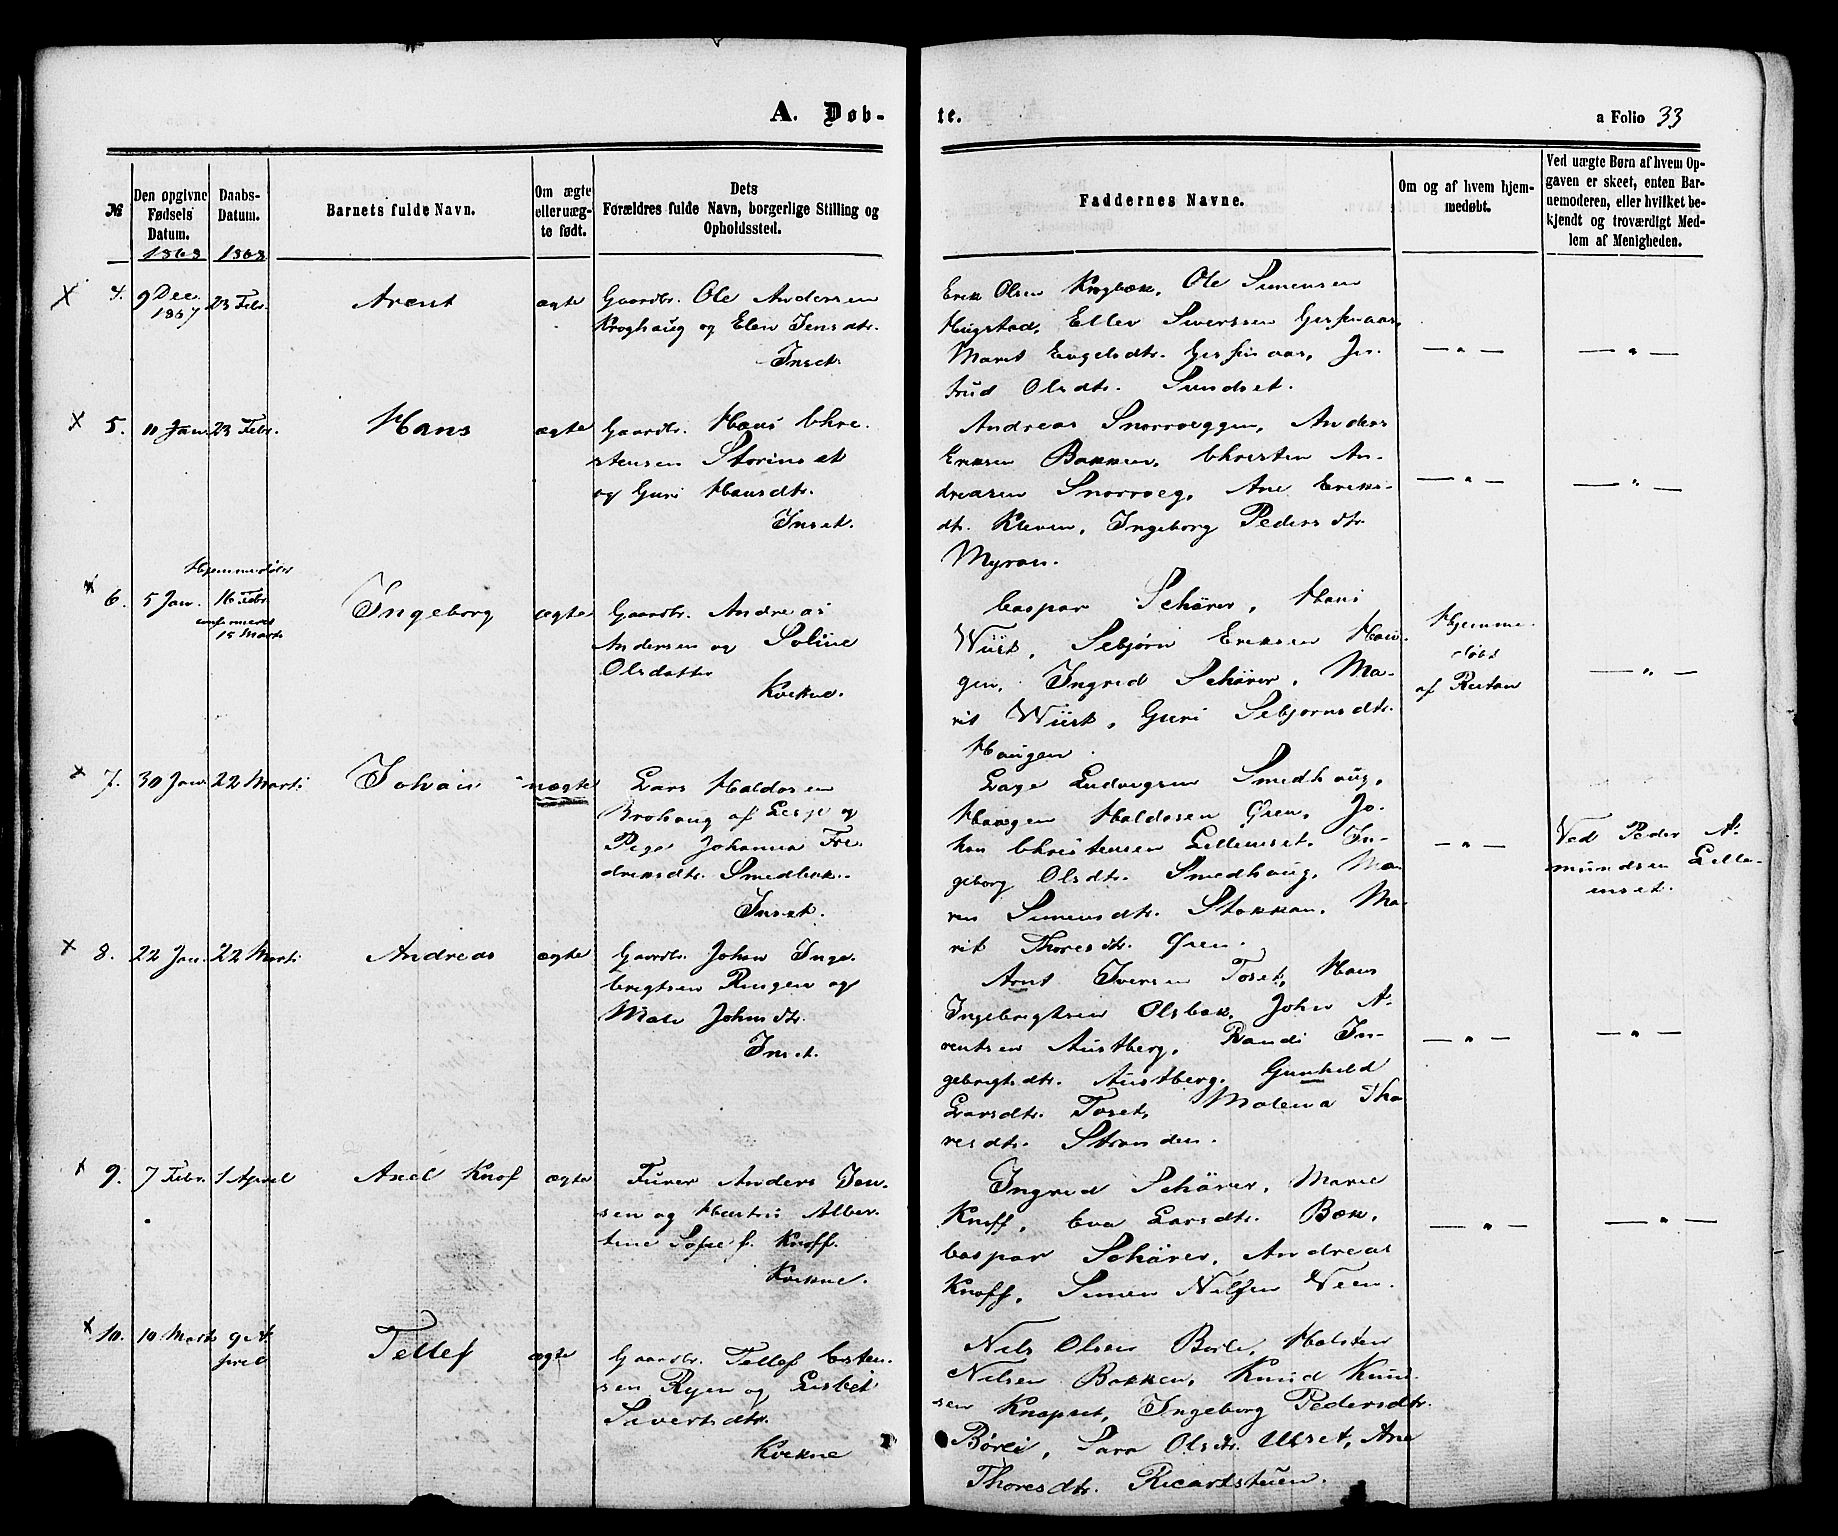 A. Døb-
te.
a Folio 33
№
Den opgivne
Fødsels
Datum.
1868
Daabs-
Datum.
1868
Barnets fulde Navn.
Om ægte
eller uæg-
te født.
Dets
Forældres fulde Navn, borgerlige Stilling og
Opholdssted.
Faddernes Navne.
Om og af hvem hjem-
medøbt.
Ved uægte Børn af hvem Op-
gaven er skeet, enten Bar-
nemoderen, eller hvilket be-
kjendt og troværdigt Med-
lem af Menigheden.
4.
9 Dec.
1867
23 Febr.
Arent
ægte
Gaardbr. Ole Andersen
Kroghaug og Elen Jensdtr.
Inset.
Erik Olsen Krogbæk, Ole Simensen
Hugstad, Ellev Siverssen
Marit Engelsdtr.
trud Olsdtr. Sundset.
— " —
— " —
5.
11 Jan.
23 Febr.
Hans
ægte
Gaardbr. Hans Chre-
stensen Storinset
og Guri Hansdtr.
Inset.
Andreas Snorroeggen, Anders
Eriksen Bakken, Christen An-
dreasen Snorroeg, Ane Eriks-
dt. Kleven, Ingeborg Pedersdtr
Myran.
— " —
— " —
6.
5 Jan.
Hjemmedøbt
16 Febr
confirmeret
15 Marts
Ingeborg
ægte
Gaardbr. Andreas
Andersen og Soline
Olsdatter
Kvikne.
Caspar Schärer, Hans
Wüst, Sebjørn Eriksen Hau-
gen, Ingrid Schärer, Ma-
rit Wüst, Guri Sebjørnsdtr.
Haugen.
Hjemme-
døbt
af Rustan
— " —
7.
30 Jan
22 Marti
Johan
uægte
Lars Haldosen
Brohaug af Lesje og
Pige Johanna Fre-
driksdtr. Smedbak.
Inset.
Lage Ludvigsen Smedhaug,
Haagen Haldosen Øien, Jo-
han Christensen Lilleinset. In-
geborg Olsdtr. Smedhaug, Ma-
ren Simensdtr. Stokkan, Ma-
rit Thoresdtr. Øien.
— " —
Ved Peder A-
mundsen Lille-
inset.
8.
22 Jan.
22 Marti
Andreas
ægte
Gaardbr. Johan Inge-
brigtsen Ringen og
Mali Johnsdtr.
Inset.
Arnt Iversen Toset, Hans
Ingebrigtsen Olsbak, John A-
rentsen Austberg, Randi In-
gebrigtsdtr. Austberg, Gunhild
Larsdtr. Toset, Malena Tho
resdtr. Stranden.
— " —
— " —
9.
7 Febr.
1 April
Axel Knof
ægte
Furer Anders Jen-
sen og Hustru Alber-
tine Sofie f. Knoff.
Kvikne.
Ingrid Schärer, Marie
Knoff, Eva Larsdtr. Bæk,
Caspar Schärer, Andreas
Knoff, Simen Nilsen Veen.
— " —
— " —
10.
10 Marts
9 A-
pril
Tellef
ægte
Gaardbr. Tellef Esten-
sen Ryen og Lisbet
Sivertsdtr.
Kvikne
Nils Olsen Børli, Halsten
Nilsen Bakken, Knud Knud-
sen Knapset, Ingeborg Pedersdtr.
Børli, Sara Olsdtr. Ulset, Ane
Thoresdtr. Ricartstuen.